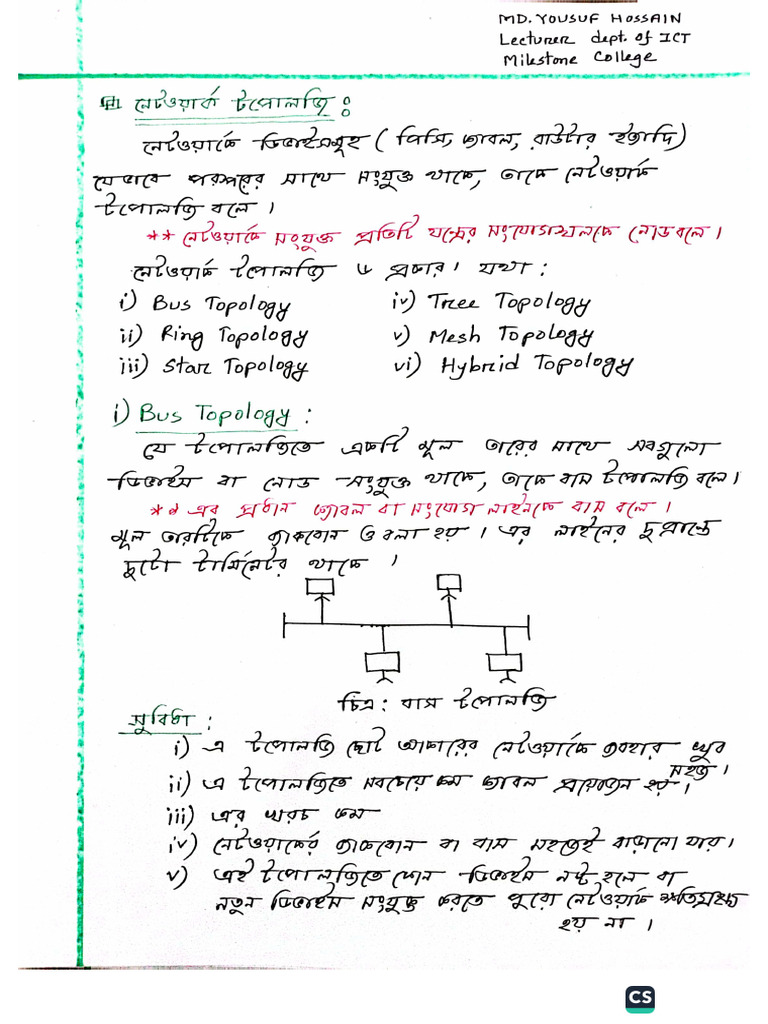 MD. YOUSUF HOSSAIN
Lecturer dept. of ICT
Milestone College
নেটওয়ার্ক টপোলজি :
নেটওয়ার্কে ডিভাইসসমূহ ( পিসি, ক্যাবল, রাউটার ইত্যাদি)
যেভাবে পরস্পরের সাথে সংযুক্ত থাকে, তাকে নেটওয়ার্ক
টপোলজি বলে ।
** নেটওয়ার্কে সংযুক্ত প্রতিটি যন্ত্রের সংযোগস্থলকে নোড বলে ।
নেটওয়ার্ক টপোলজি ৬ প্রকার । যথা :
i) Bus Topology iv) Tree Topology
ii) Ring Topology v) Mesh Topology
iii) Star Topology vi) Hybrid Topology
i) Bus Topology :
যে টপোলজিতে একটি মূল তারের সাথে সবগুলো
ডিভাইস বা নোড সংযুক্ত থাকে, তাকে বাস টপোলজি বলে ।
** এর প্রধান ক্যাবল বা সংযোগ লাইনকে বাস বলে ।
মূল তারটিকে ব্যাকবোন ও বলা হয় । এর লাইনের দুপ্রান্তে
দুটো টার্মিনেটর থাকে ।
চিত্র : বাস টপোলজি
সুবিধা :
i) এ টপোলজি ছোট আকারের নেটওয়ার্কে ব্যবহার খুব
সহজ ।
ii) এ টপোলজিতে সবচেয়ে কম ক্যাবল প্রয়োজন হয় ।
iii) এর খরচ কম
iv) নেটওয়ার্কের ব্যাকবোন বা বাস সহজেই বাড়ানো যায় ।
v) এই টপোলজিতে কোন ডিভাইস নষ্ট হলে বা
নতুন ডিভাইস সংযুক্ত করতে পুরো নেটওয়ার্ক ক্ষতিগ্রস্থ
হয় না ।
CS